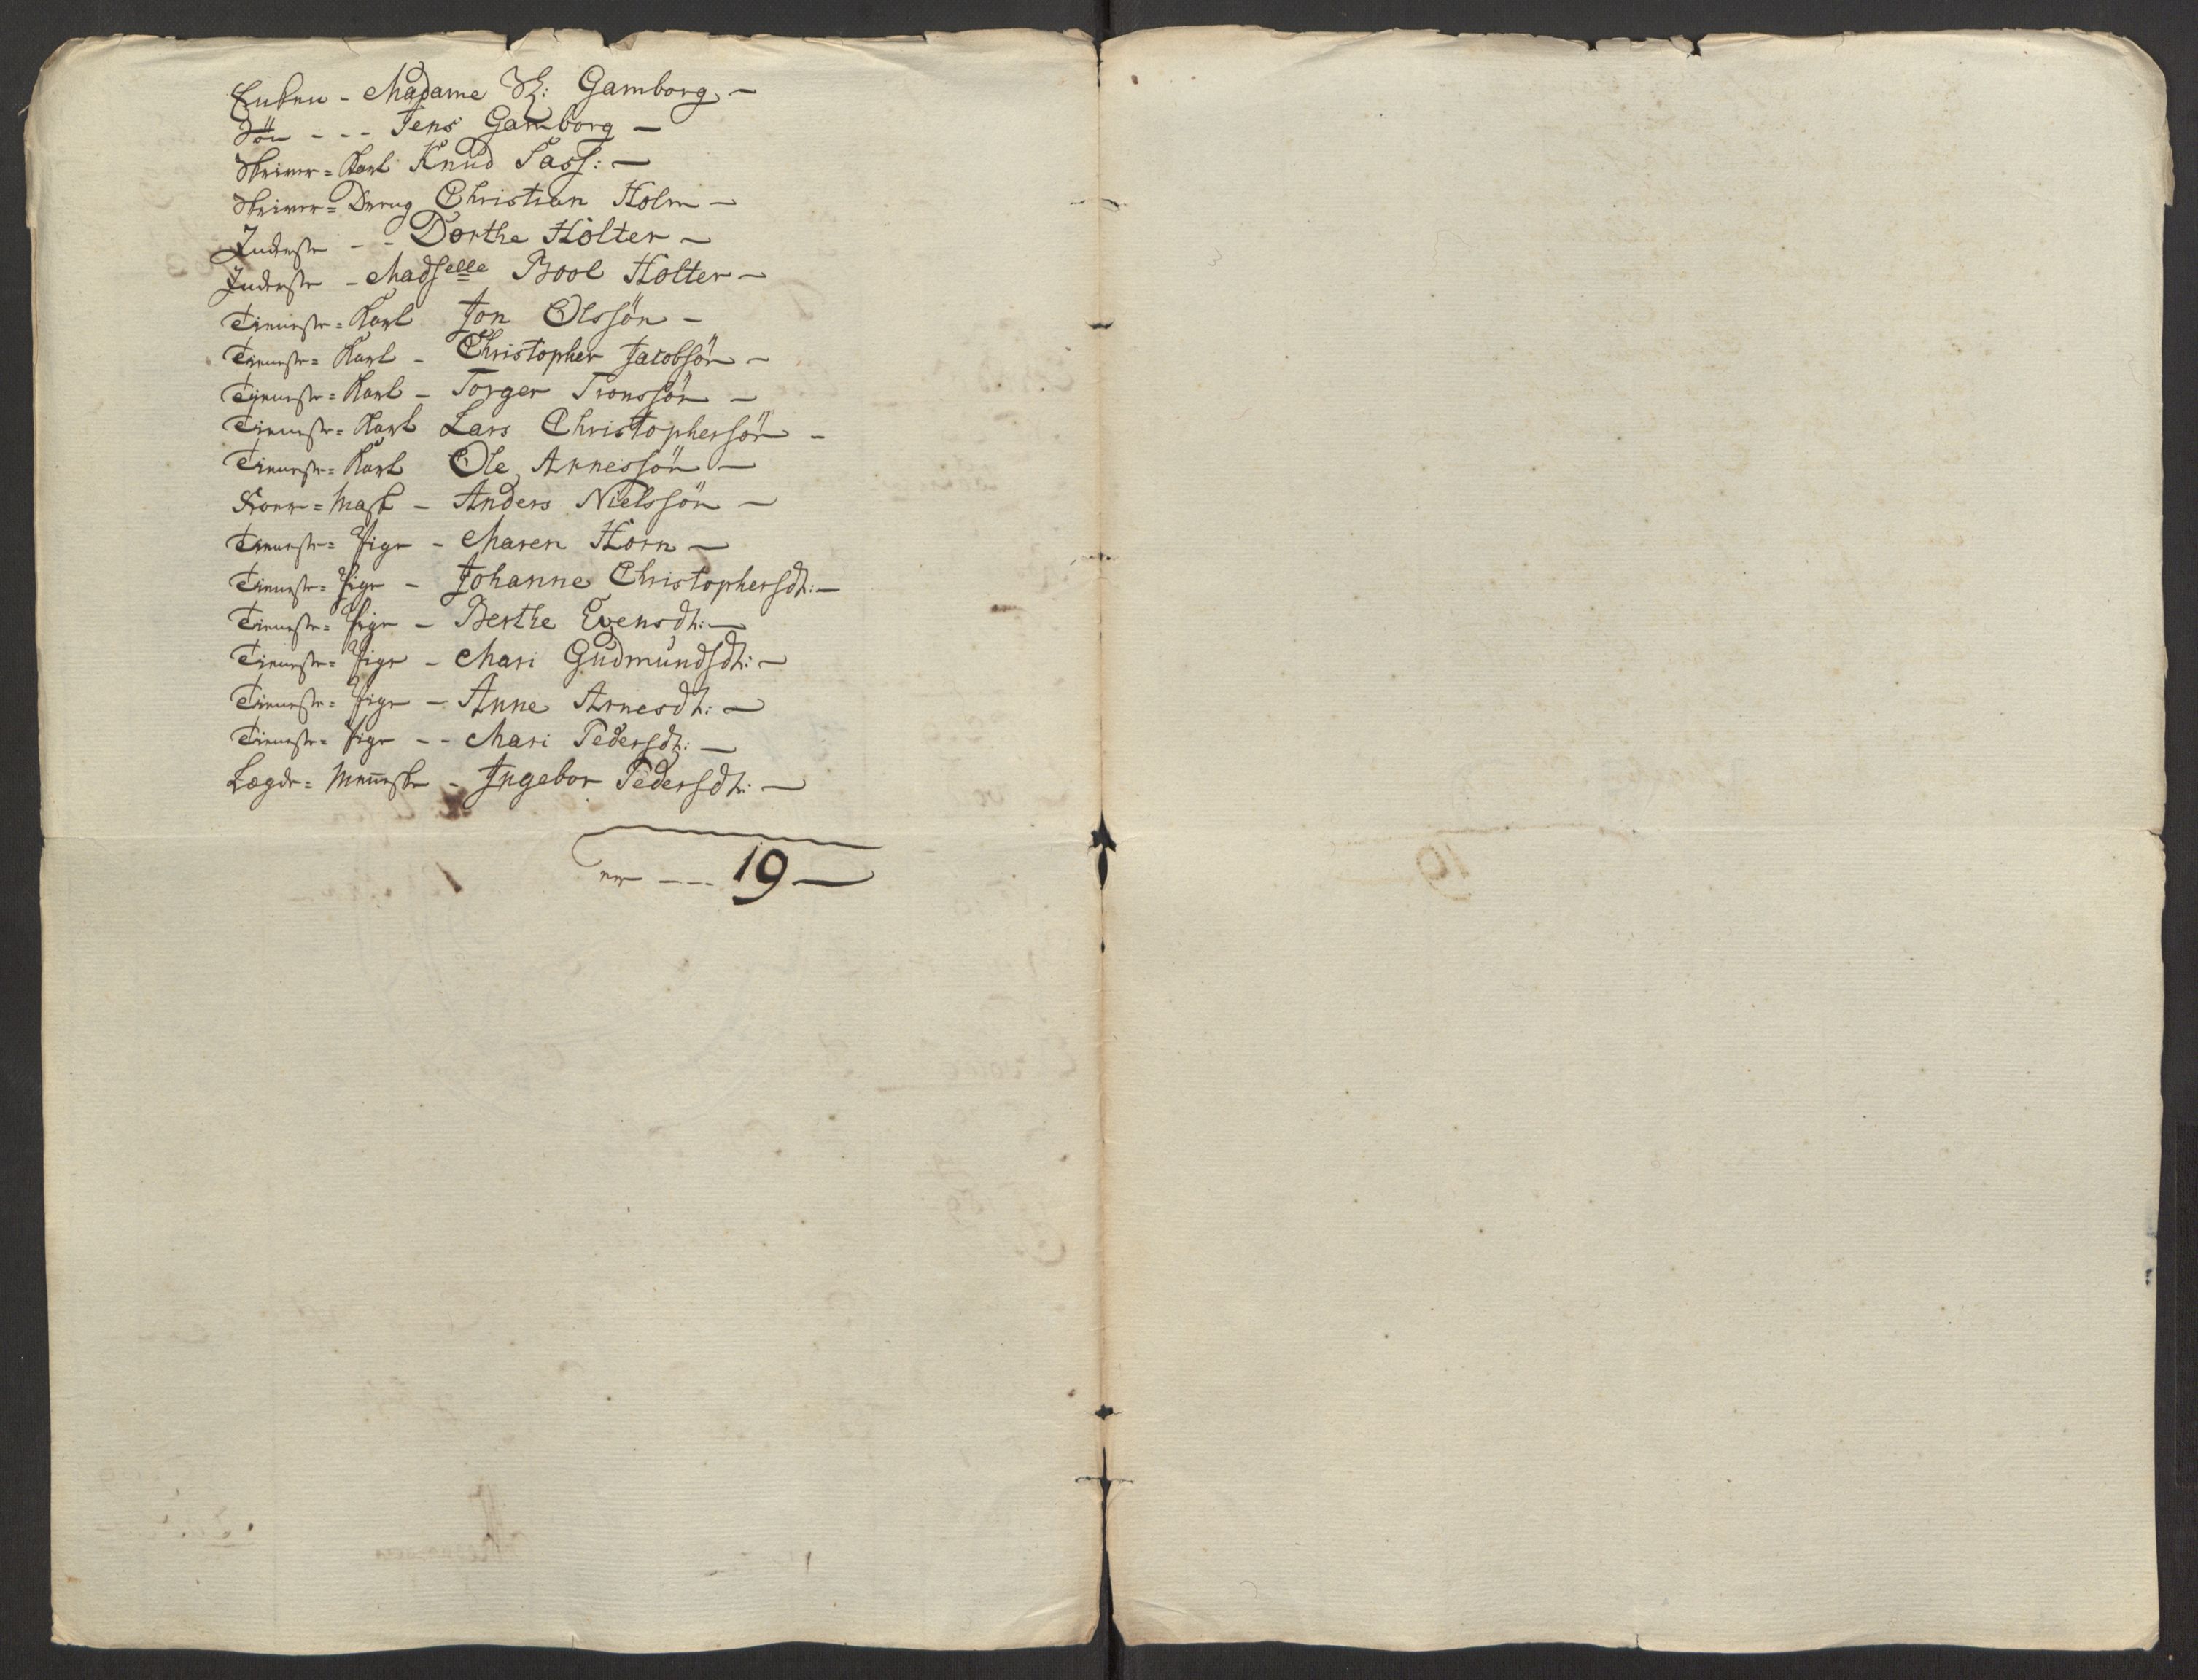 Enken - Madame Sl: Gamborg -
Søn - - - Jens Gamborg -
Skriver= Karl Knud Pass: -
Skriver= Dreng Christian Holm -
Inderste - - Dorthe Holter -
Inderste - Madselle Bool Holter -
Tieneste= Karl Jon Olssøn -
Tieneste= Karl - Christopher Jacobsøn -
Tieneste= Karl - Torger Tronssøn -
Tieneste= Karl Lars Christophersøn -
Tieneste= Karl Ole Arnessøn -
Anders Nielssøn -
Tieneste= Pige - Maren Horn -
Tieneste= Pige - Johanne Christophersdt: -
Tieneste= Pige - Berthe Evensdt: -
Tieneste= Pige - Mari Gudmundsdt: -
Tieneste= Pige - Anne Arnesdt: -
Tieneste= Pige - - Mari Pedersdt: -
Lægde= Menneske - Ingebor Pedersdt: -
er - - - 19 -